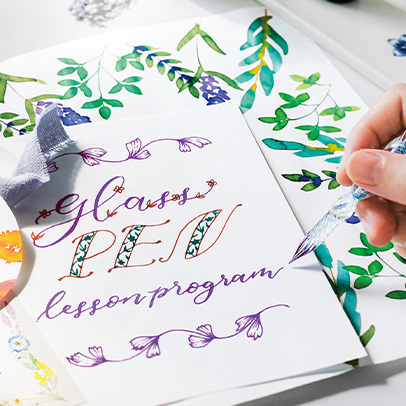 Glass
PEN
lesson program